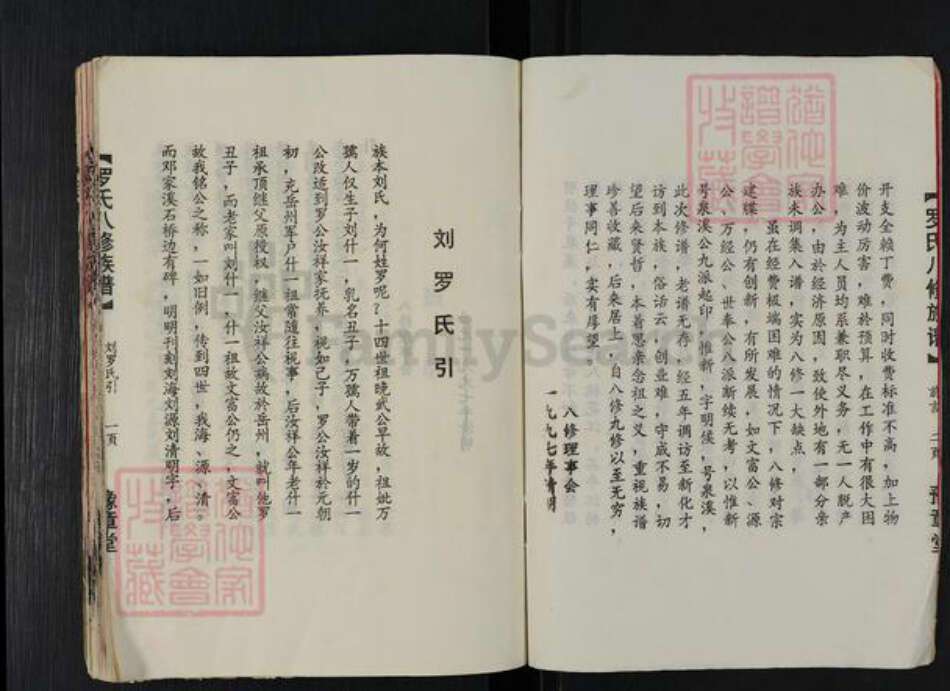 开支全赖丁费，同时收费标准不高，加上物
价波动厉害，难於预算，在工作中有很大困
难，为主人员均系兼职尽义务，无一人脱产
办公，由於经济原因，致使外地有一部分亲
族未调集入谱，实为八修一大缺点，
虽在经费极端困难的情况下，八修对宗
建牒，仍有创新，有所发展，如文富公、源
公、万经公、世奉公八派断续无考，以惟新
号泉溪公九派起印，惟新，字明候，号泉溪，
此次修谱，老谱无存，经五年调访至新化才
访到本族，俗话云，创业难，守成不易，切
望后来贤哲，本着思亲念祖之义，重视族谱
珍善收藏，后来居上，自八修九修以至无穷，
理事同仁，实有厚望，
八修理事会
一九九七年清明
【罗氏八修族谱】
二页
豫章堂
刘罗氏引
族本刘氏，为何姓罗呢？十四世祖晚武公早故，祖妣万
孺人仅生子刘什一，乳名丑子，万孺人带着一岁的什一
公改适到罗公汝祥家抚养，视如己子，罗公汝祥於元朝
初，充岳州军户什一祖常随往视事，后汝祥公年老什一
祖承顶继父原授权，继父汝祥公病故於岳州，就叫他罗
丑子，而老家叫刘什一，什一祖故文富公仍之，文富公
故我铭公之称，一如旧例，传到四世，我海、源、清。
而邓家溪石桥边有碑，明明刊刻刘海刘源刘清明字，后
【罗氏八修族谱】
刘罗氏引
一页
豫章堂
FamilySearch